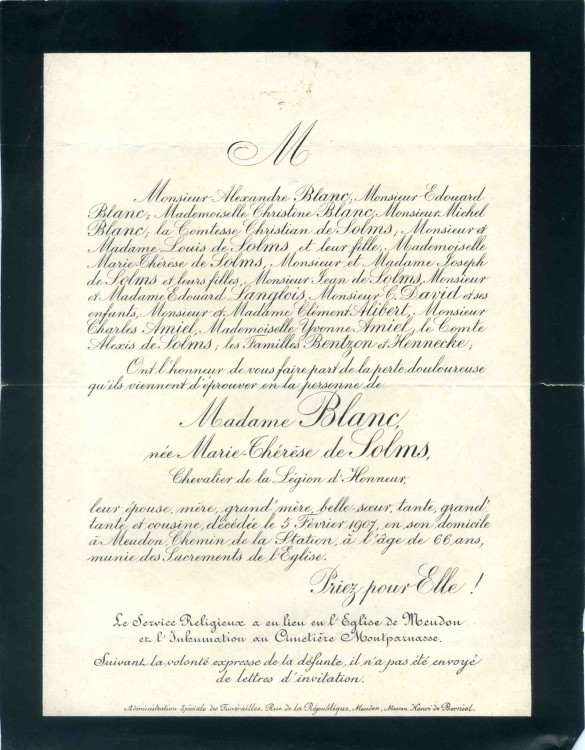 M
Monsieur Alexandre Blanc, Monsieur Edouard
Blanc, Mademoiselle Christine Blanc, Monsieur Michel
Blanc, la Comtesse Christian de Solms, Monsieur et
Madame Louis de Solms et leur fille, Mademoiselle
Marie-Thérèse de Solms, Monsieur et Madame Joseph
de Solms et leurs filles, Monsieur Jean de Solms, Monsieur
et Madame Edouard Langlois, Monsieur C. David et ses
enfants, Monsieur et Madame Clément Alibert, Monsieur
Charles Amiel, Mademoiselle Yvonne Amiel, le Comte
Alexis de Solms; les Familles Bentzon et Hennecke;
Ont l'honneur de vous faire part de la perte douloureuse
qu'ils viennent d'éprouver en la personne de
Madame Blanc,
née Marie-Thérèse de Solms,
Chevalier de la Légion d'Honneur,
leur épouse, mère, grand'mère, belle-sœur, tante, grand'
tante, et cousine, décédée le 5 Février 1907, en son domicile
à Meudon, Chemin de la Station, à l'âge de 66 ans,
munie des Sacrements de l'Eglise.
Priez pour Elle !
Le Service Religieux a eu lieu en l'Eglise de Meudon
et l'Inhumation au Cimetière Montparnasse.
Suivant la volonté expresse de la défunte, il n'a pas été envoyé
de lettres d'invitation.
Administration Spéciale des Funérailles, Rue de la République, Meudon, Maison Henri de Borniol.